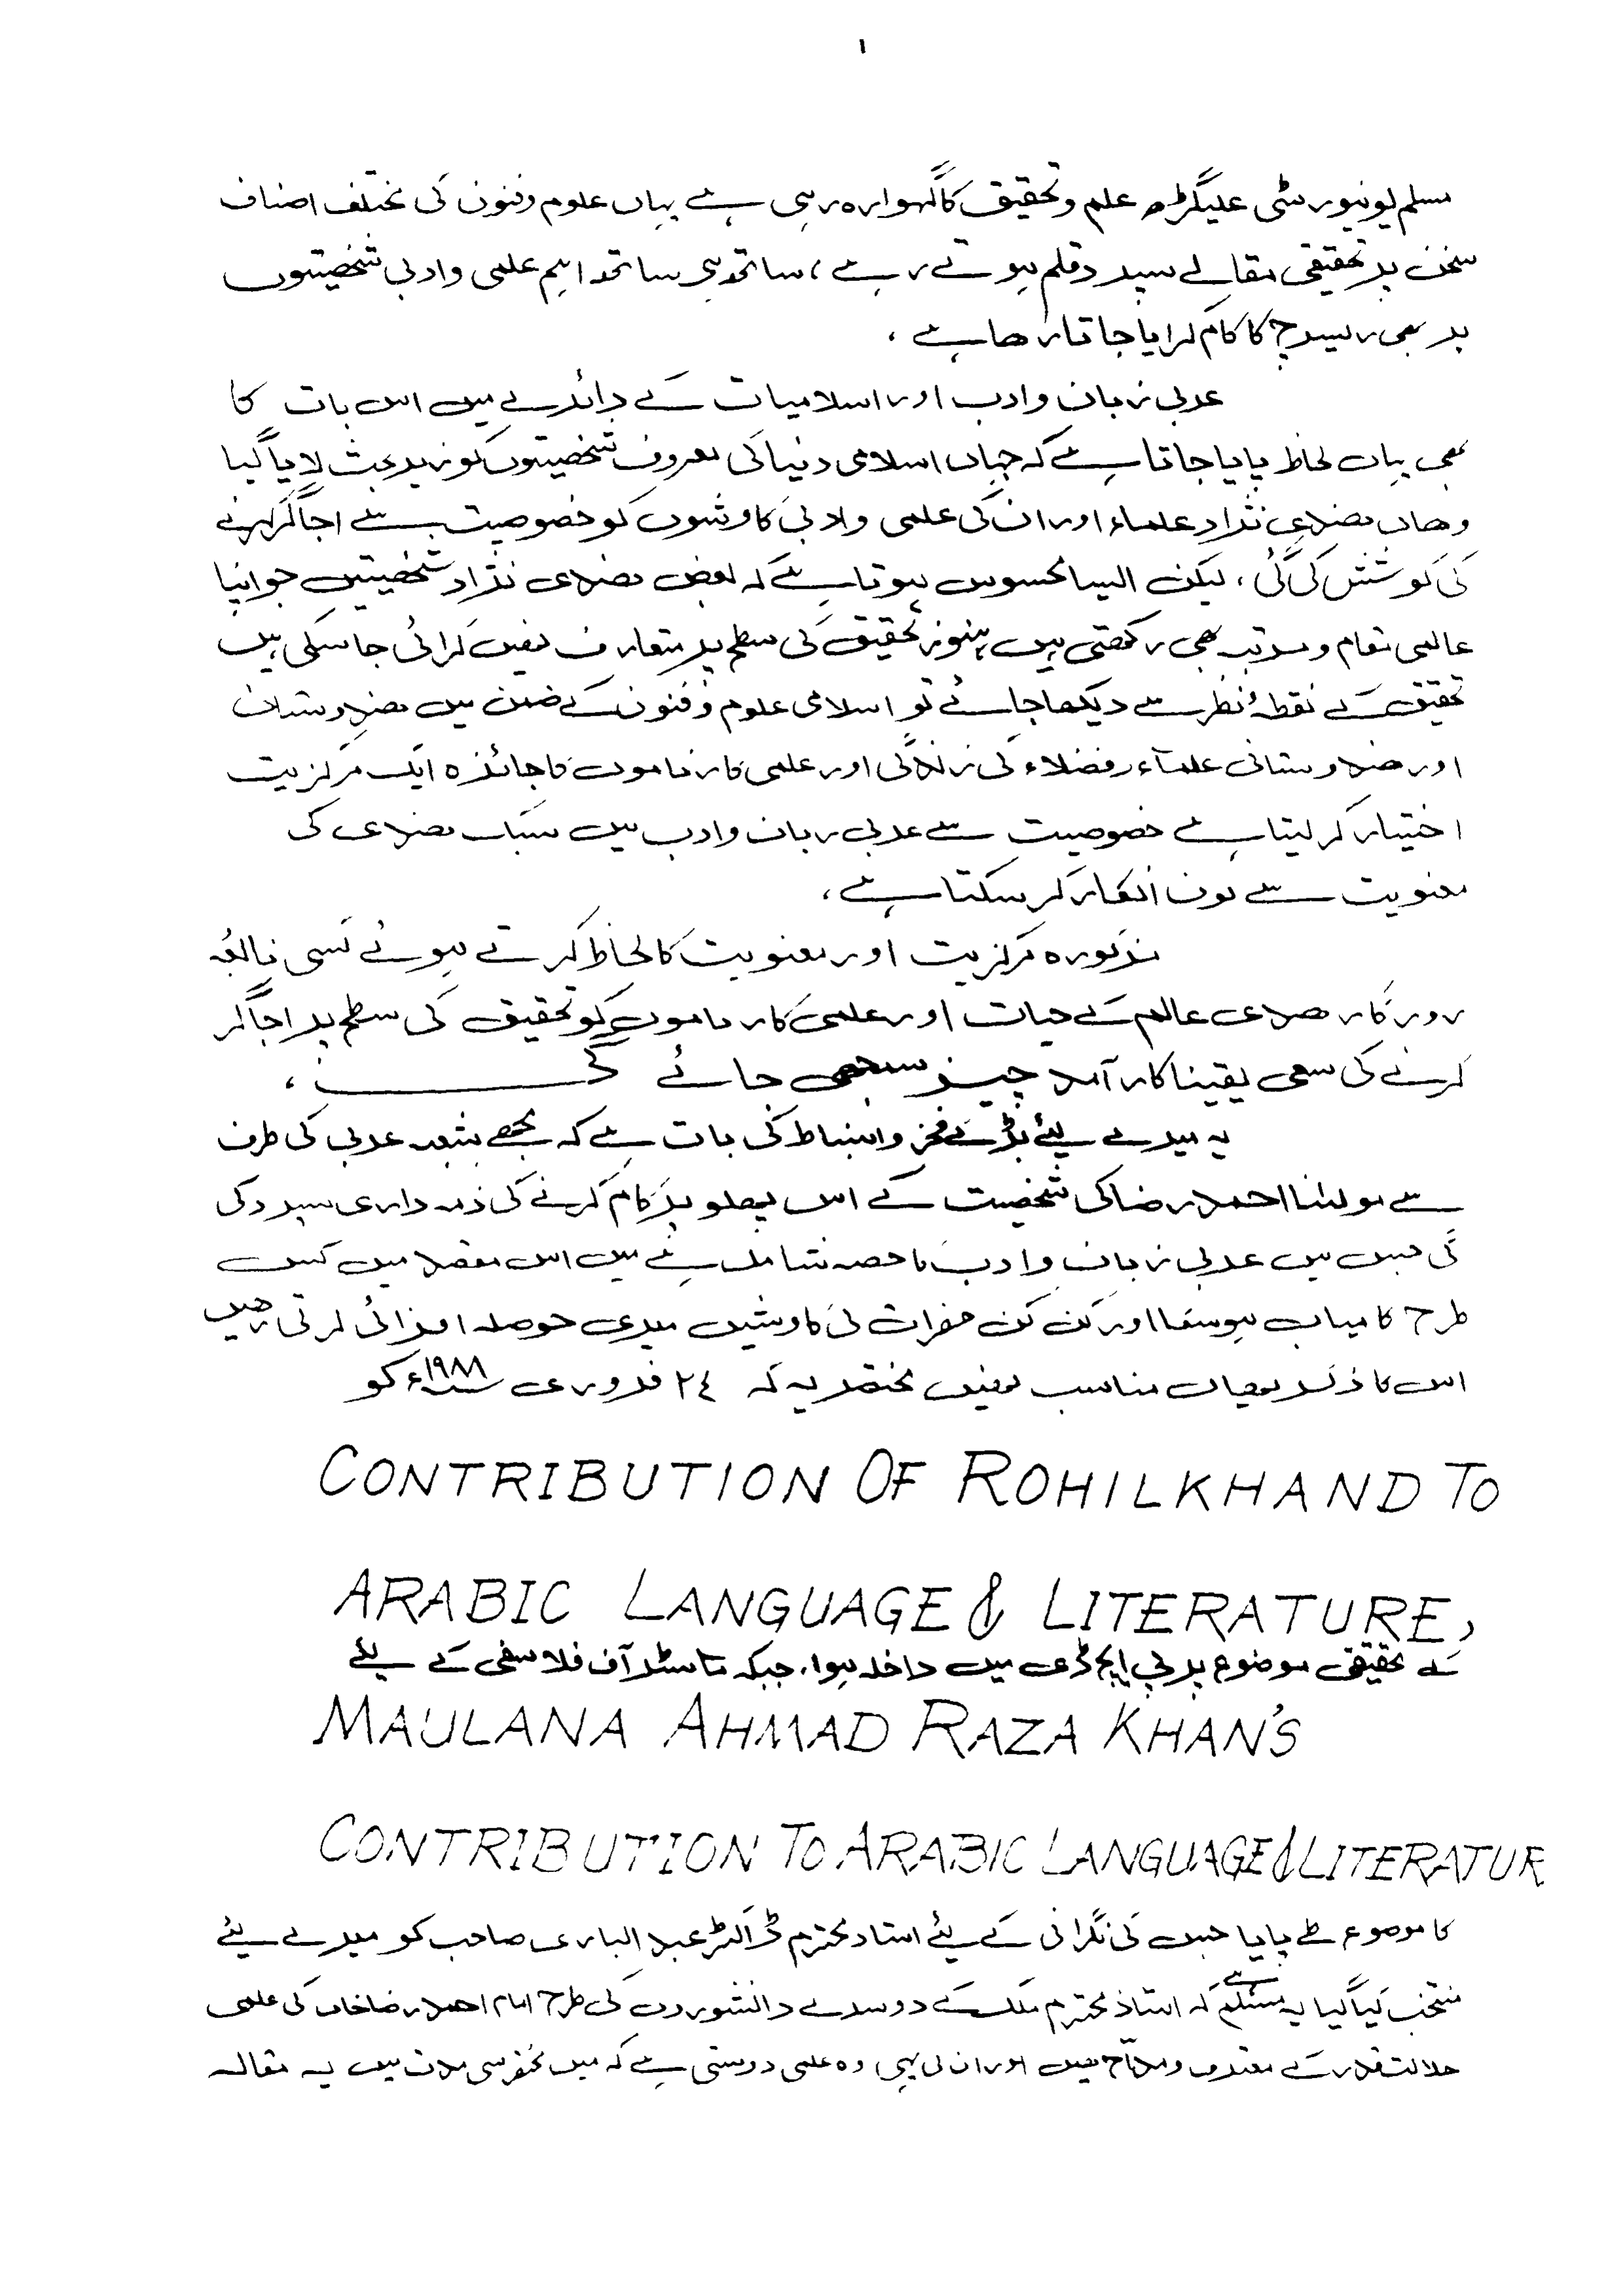 ١
مسلم یونیورسٹی علیگڑھ علم وتحقیق کا گہوارہ رہی ہے یہاں علوم وفنون کی مختلف اصناف
سخن پر تحقیقی مقالے سپرد قلم ہوتے رہے ، ساتھ ہی ساتھ اہم علمی وادبی شخصیتوں
پر بھی ریسرچ کا کام کرایا جاتا رھا ہے ،
عربی زبان وادب اور اسلامیات کے دائرے میں اس بات کا
بھی یہاں لحاظ پایا جاتا ہے کہ جہاں اسلامی دنیا کی معروف شخصیتوں کو زیر بحث لایا گیا
وھاں ھندی نژاد علماء اور ان کی علمی وادبی کاوشوں کو خصوصیت سے اجاگر کرنے
کی کوشش کی گئی ، لیکن ایسا محسوس ہوتا ہے کہ بعض ھندی نژاد شخصیتیں جو اپنا
عالمی مقام ومرتبہ بھی رکھتی ہیں ہنوز تحقیق کی سطح پر متعارف نھیں کرائی جا سکی ہیں
تحقیق کے نقطۂ نظر سے دیکھا جائے تو اسلامی علوم و فنون کے ضمن میں ھندوستان
اور ھندوستانی علمآء وفضلاء کی زندگی اور علمی کارناموں کا جائزہ ایک مرکزیت
اختیار کر لیتا ہے خصوصیت سے عربی زبان وادب میں ھندی کی
معنویت سے کون انکار کر سکتا ہے ،
مذکورہ مرکزیت اور معنویت کا لحاظ کرتے ہوئے کسی نابغۂ
روزگار ھندی عالم کے حیات اور علمی کارناموں کو تحقیق کی سطح پر اجاگر
کرنے کی سعی یقینا کارآمد چیز سمجھی جائے گی ،
یہ میرے لیئے بڑے فخر وانبساط کی بات ہے کہ مجھے شعبہ عربی کی طرف
سے مولٰنا احمد رضا کی شخصیت کے اس پھلو پر کام کرنے کی ذمہ داری سپرد کی
گئی جس میں عربی زبان وادب کا حصہ شامل ہے میں اس مقصد میں کس
طرح کامیاب ہوسکا اور کن کن حضرات کی کاوشیں میری حوصلہ افزائی کرتی رھیں
اس کا ذکر یھاں مناسب نھیں مختصر یہ کہ ٢٤ فروری ١٩٨٨ء کو
CONTRIBUTION OF ROHILKHAND TO
ARABIC LANGUAGE & LITERATURE,
کے تحقیقی موضوع پر پی ایچ ڈی میں داخلہ ہوا ، جبکہ ماسٹر آف فلاسفی کے لیئے
MAULANA AHMAD RAZA KHAN'S
CONTRIBUTION TO ARABIC LANGUAGE & LITERATUR
کا موضوع طے پایا جس کی نگرانی کے لیئے استاد محترم ڈاکٹر عبد الباری صاحب کو میرے لیئے
منتخب کیا گیا یہ مسلم ہے کہ استاذ محترم ملک کے دوسرے دانشوروں کی طرح امام احمد رضا خاں کی علمی
جلالت قدر کے معترف ومداح ھیں اور ان کی یہی وہ علمی دوستی ہے کہ میں مختصر سی مدت میں یہ مقالہ